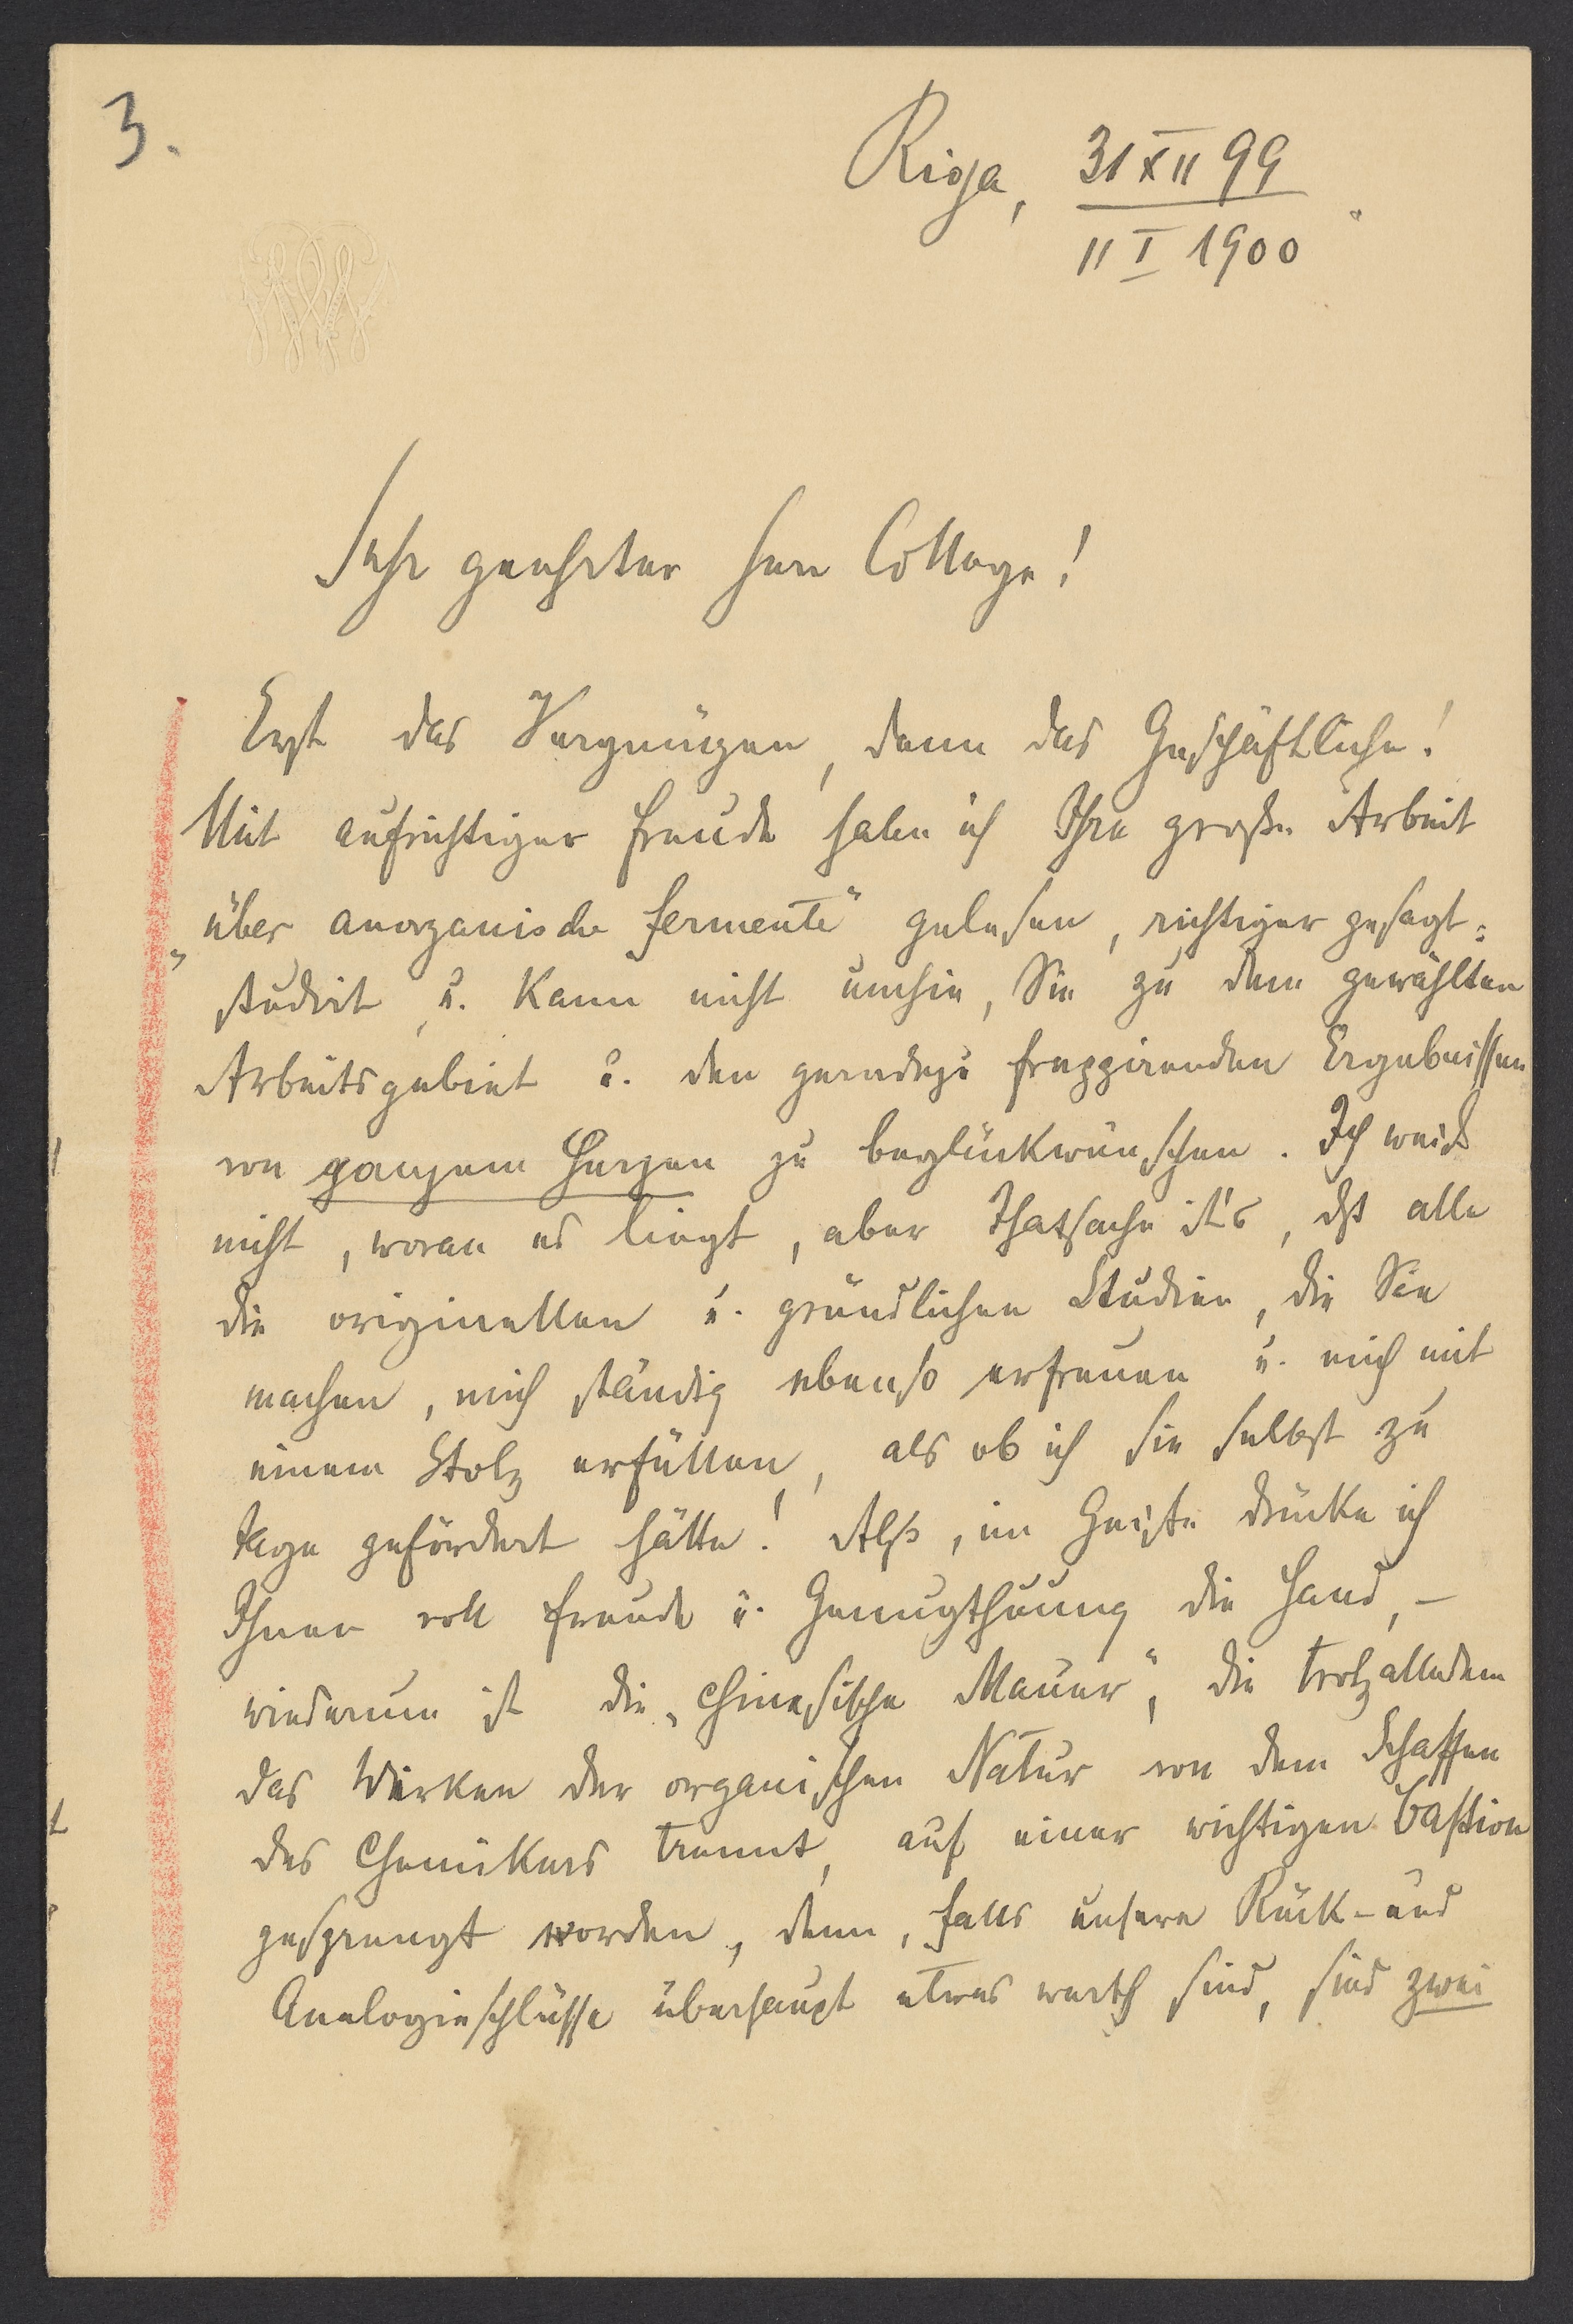 3.
Riga, 31 XII 99
11 I 1900.
Sehr geehrter Herr College!
Erst das Vergnügen, dann das Geschäftliche!
Mit aufrichtiger Freude habe ich Ihre große Arbeit
„über anorganische Fermente“ gelesen, richtiger gesagt:
studirt, u. kann nicht umhin, Sie zu dem gewählten
Arbeitsgebiet u. den geradezu frappirenden Ergebnissen
von ganzem Herzen zu beglückwünschen. Ich weiß
nicht, woran es liegt, aber Thatsache ist's, dß alle
die originellen u. gründlichen Studien, die Sie
machen, mich ständig ebenso erfreuen u. mich mit
einem Stolz erfüllen, als ob ich sie selbst zu
tage gefördert hätte! Also, im Geiste drücke ich
Ihnen voll Freude u. Genugthuung die Hand, –
wiederum ist die „chinesische Mauer“, die trotzalledem
das Wirken der organischen Natur von dem Schaffen
des Chemikers trennt, auf einer wichtigen Bastion
gesprengt worden, denn, falls unsere Rück- und
Analogieschlüsse überhaupt etwas werth sind, sind zwei